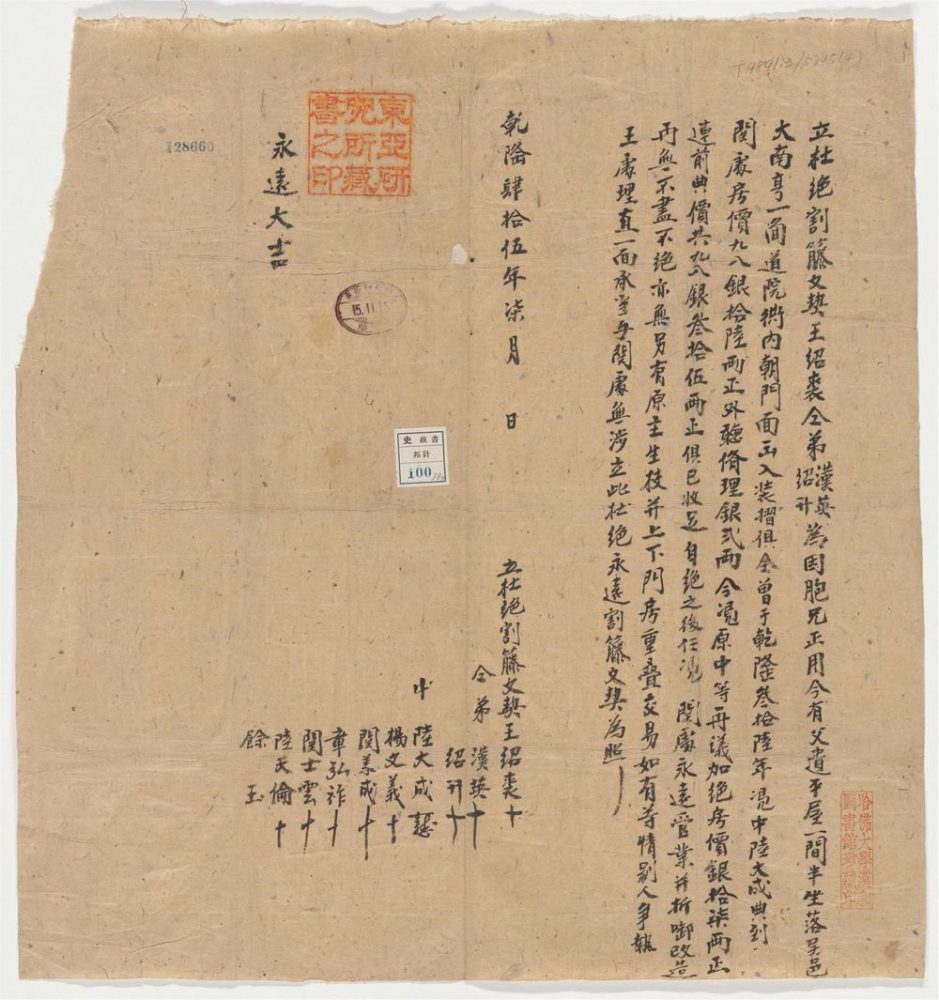 立杜絕割籐文契王紹裘仝弟漢英紹升為因胞兄正用今有父遺平屋一間半坐落吳邑
大南亨一面道院衖内朝門面出入裝摺俱全曽于乾隆叁拾陸年憑中陸大成典到
閔處房價九八銀拾陸兩正外聽脩理銀弍兩今憑原中等再議加絕房價銀拾柒兩正
連前典價共九八銀叁拾伍兩正俱已收足自絕之後任憑 閔處永遠管業并拆卸改造
再無不盡不絕亦無另有原主生枝并上下門房重疊交易如有等情別人爭執
王處理直一面承當与閔處無涉立此杜絕永遠割籐文契為照
乾隆肆拾伍年柒月 日
立杜絕割籐文契王紹裘十
仝弟 漢英十
紹升十
中 陸大成
楊文義十
閔美成十
章弘祚十
閔士雲十
陸天倫十
餘玉
永遠大吉
東亞研
究所藏
書之印
128660
15.11
史 政 書
邦 計
100
哈佛大學漢和
圖書館珍藏印